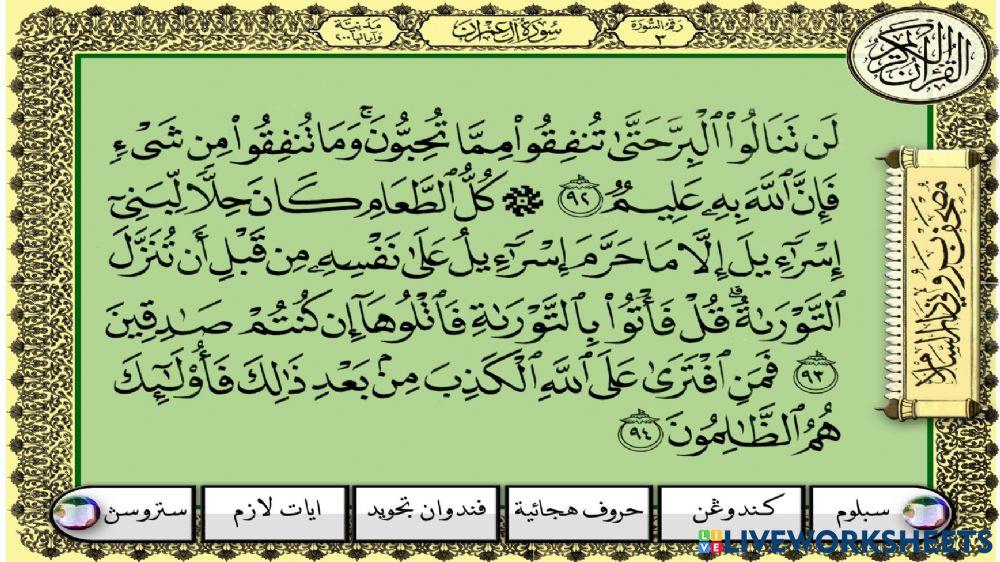 رقم السورة
٣
سورة آل عمران
مدنية
وآياتها ٢٠٠
القرآن الكريم
لَن تَنَالُوا۟ ٱلْبِرَّ حَتَّىٰ تُنفِقُوا۟ مِمَّا تُحِبُّونَ ۚ وَمَا تُنفِقُوا۟ مِن شَىْءٍ
فَإِنَّ ٱللَّهَ بِهِۦ عَلِيمٌ ﴿٩٢﴾ ۞ كُلُّ ٱلطَّعَامِ كَانَ حِلًّا لِّبَنِىٓ
إِسْرَٰٓءِيلَ إِلَّا مَا حَرَّمَ إِسْرَٰٓءِيلُ عَلَىٰ نَفْسِهِۦ مِن قَبْلِ أَن تُنَزَّلَ
ٱلتَّوْرَىٰةُ ۗ قُلْ فَأْتُوا۟ بِٱلتَّوْرَىٰةِ فَٱتْلُوهَآ إِن كُنتُمْ صَٰدِقِينَ
﴿٩٣﴾ فَمَنِ ٱفْتَرَىٰ عَلَى ٱللَّهِ ٱلْكَذِبَ مِنۢ بَعْدِ ذَٰلِكَ فَأُو۟لَٰٓئِكَ
هُمُ ٱلظَّٰلِمُونَ ﴿٩٤﴾
سبلوم
كندوڠن
حروف هجائية
فندوان تجويد
ايات لازم
ستروسڽ
LIVEWORKSHEETS